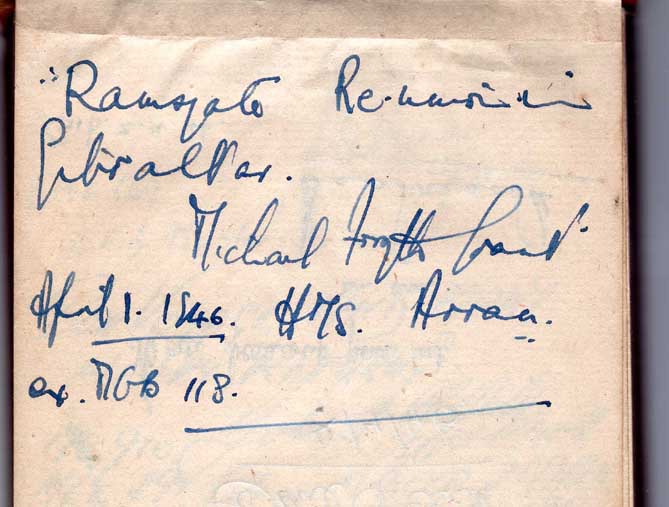 "Ramsgate Re-union in
Gibraltar.
Michael Forsyth Grant"
April 1. 1946. HMS. Arran.
ex. MGB 118.